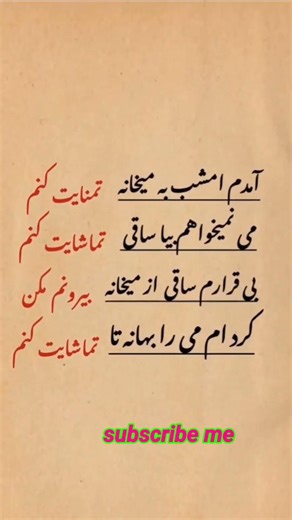 آمدم امشب به میخانه تمنایت کنم
می نمیخواهم بیا ساقی تماشایت کنم
بی قرارم ساقی از میخانه بیرونم مکن
کرد ام می را بهانه تا تماشایت کنم
subscribe me